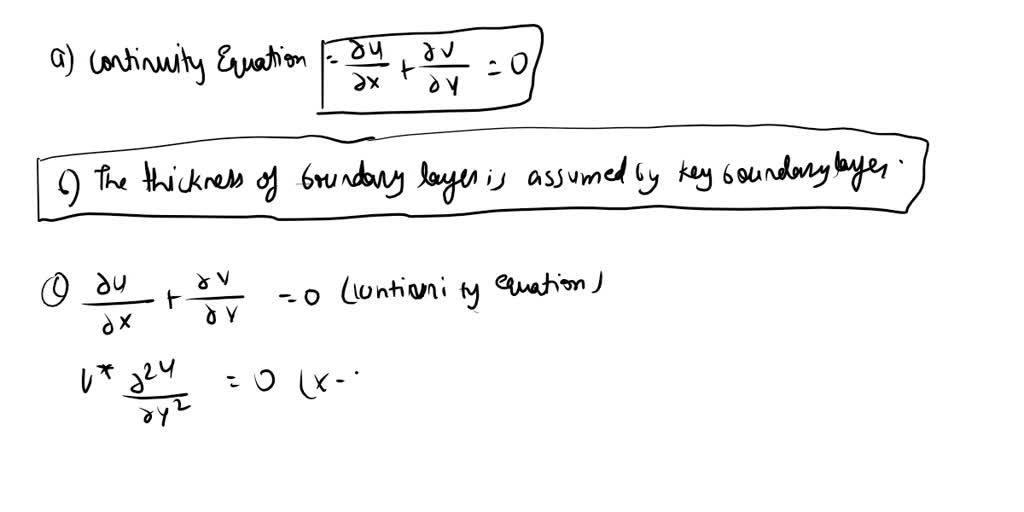 a) Continuity Equation = ∂u/∂x + ∂v/∂y = 0
c) The thickness of boundary layer is assumed by key boundary layer.
① ∂u/∂x + ∂v/∂y = 0 (continuity equation)
ν* ∂²u/∂y² = 0 (x-